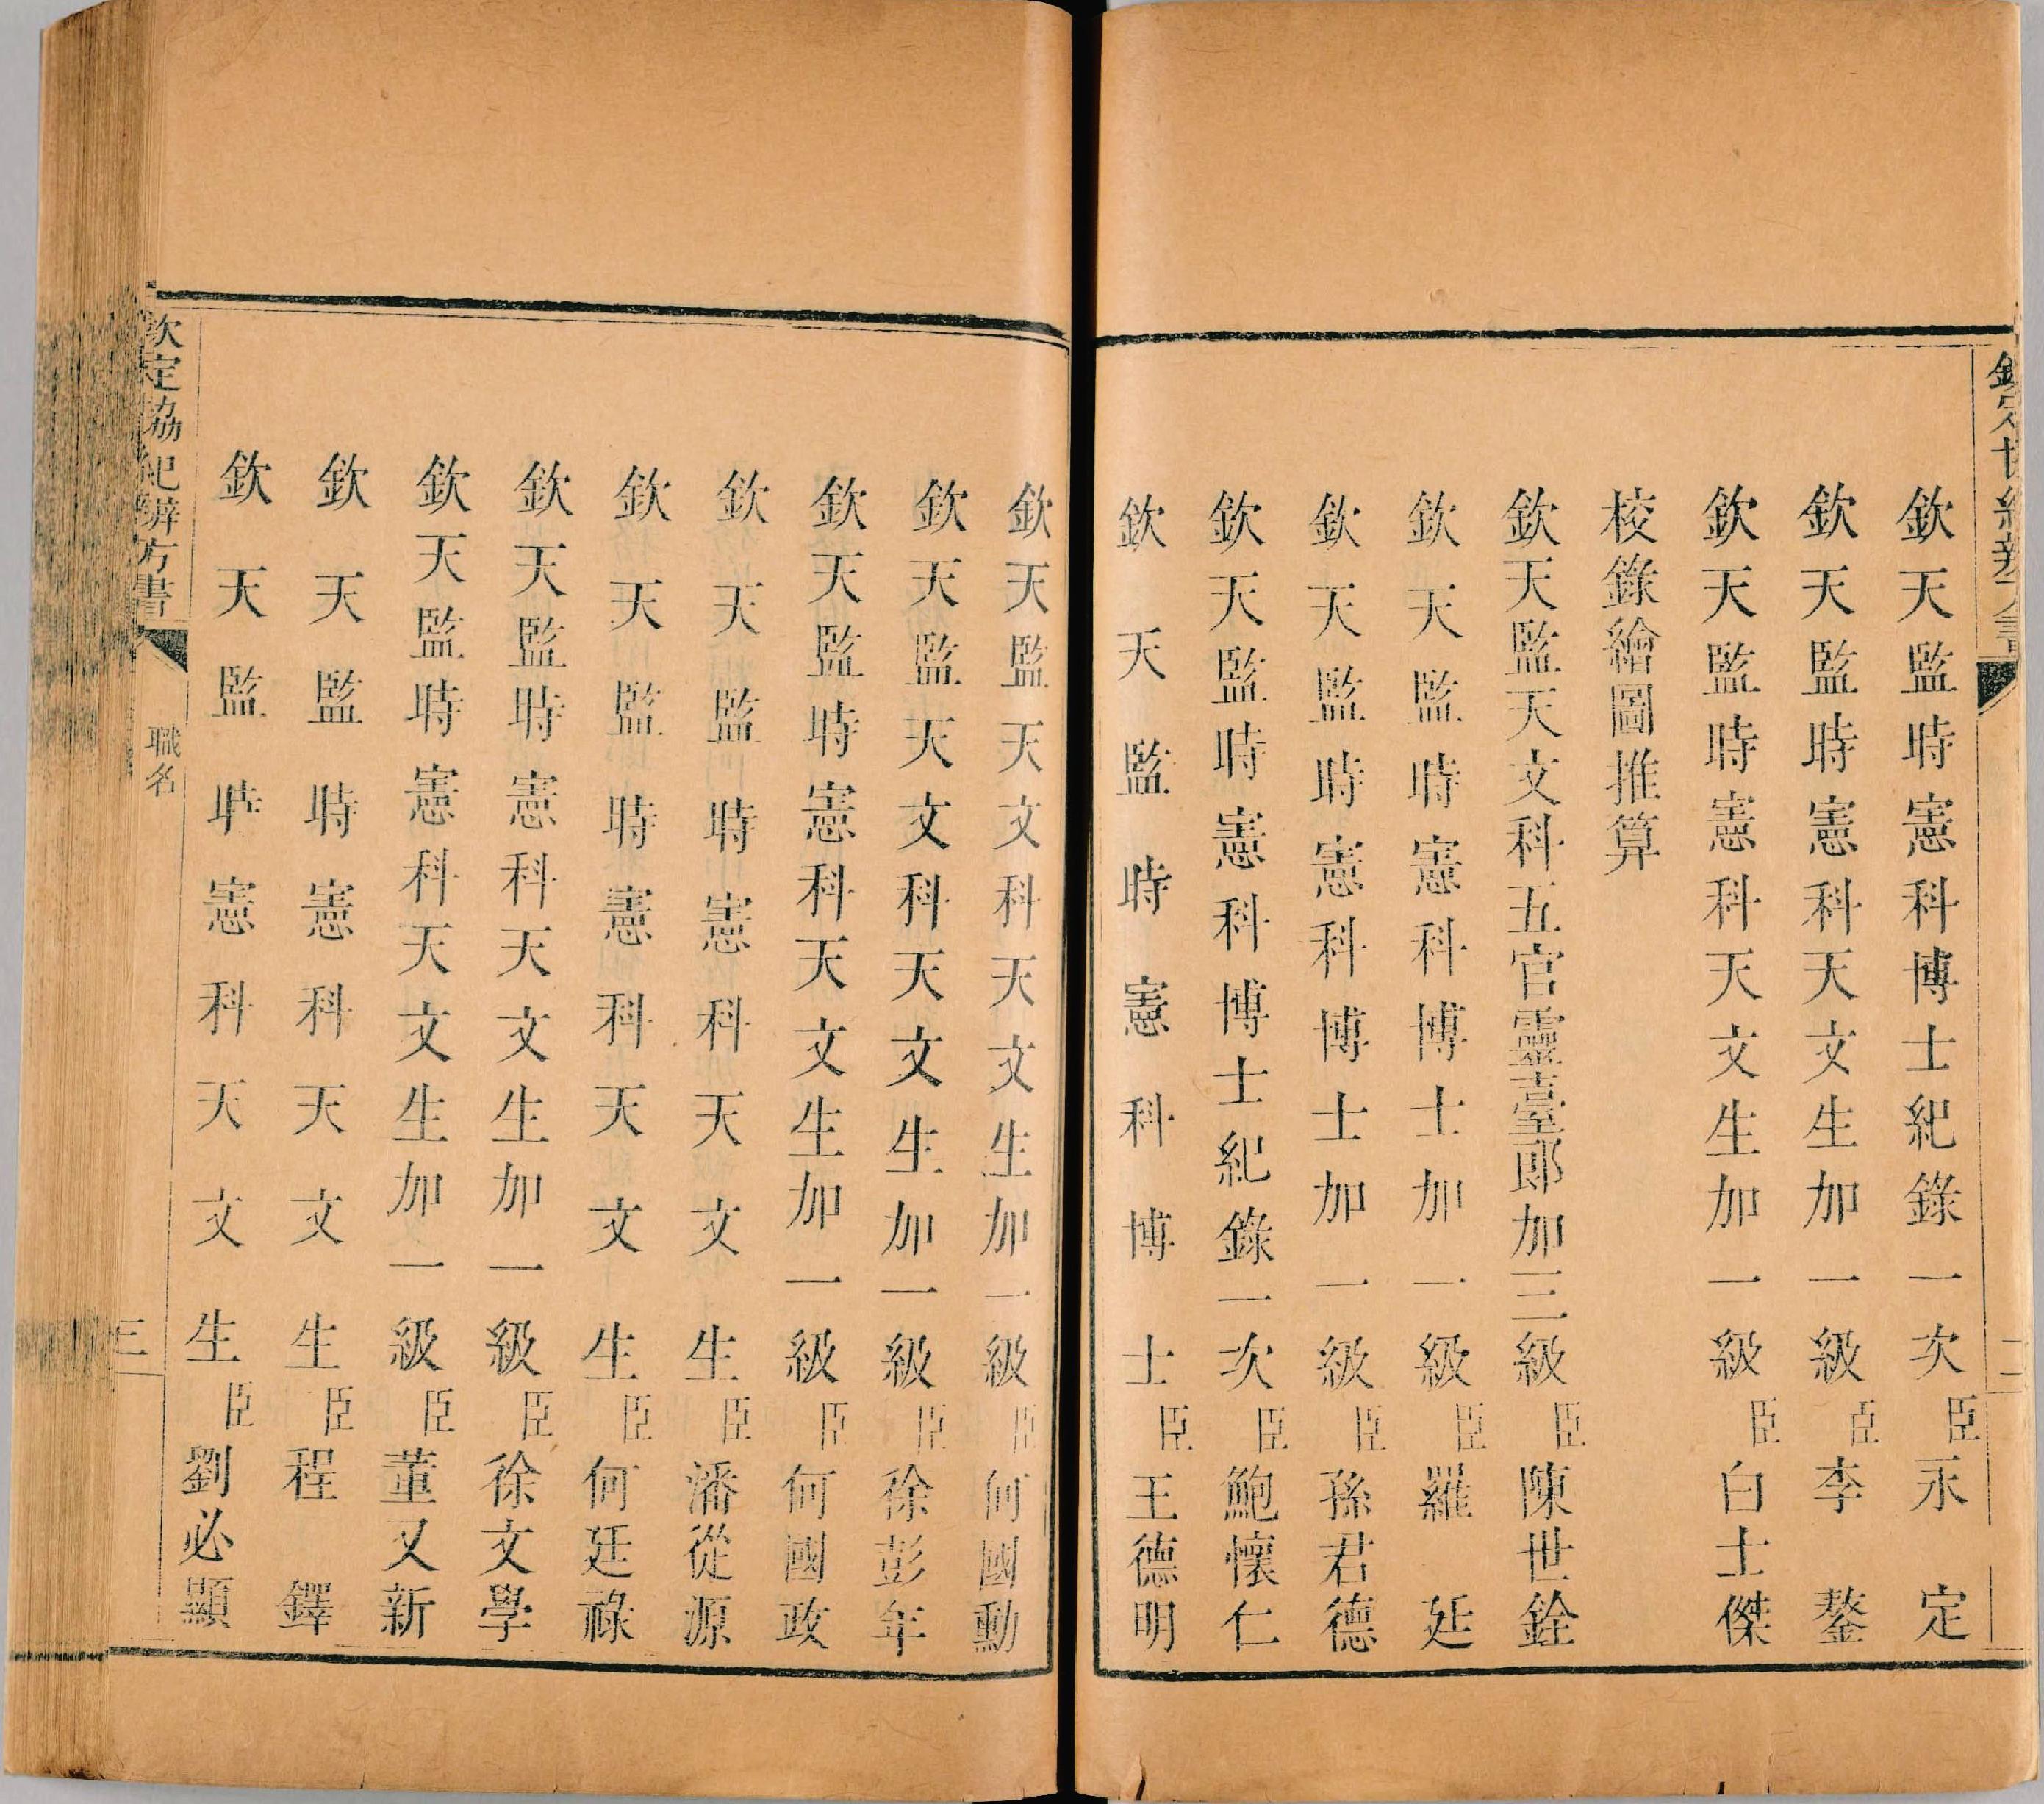 欽天監時憲科博士紀錄一次臣永定
欽天監時憲科天文生加一級臣李鏊
欽天監時憲科天文生加一級臣白士傑
校錄繪圖推算
欽天監天文科五官靈臺郎加三級臣陳世銓
欽天監時憲科博士加一級臣羅廷
欽天監時憲科博士加一級臣孫君德
欽天監時憲科博士紀錄一次臣鮑懷仁
欽天監時憲科博士臣王德明
欽天監天文科天文生加一級臣何國勳
欽天監天文科天文生加一級臣徐彭年
欽天監時憲科天文生加一級臣何國政
欽天監時憲科天文生臣潘從源
欽天監時憲科天文生臣何廷祿
欽天監時憲科天文生加一級臣徐文學
欽天監時憲科天文生加一級臣董又新
欽天監時憲科天文生臣程鐸
欽天監時憲科天文生臣劉必顯
欽定協紀辨方書
職名
三